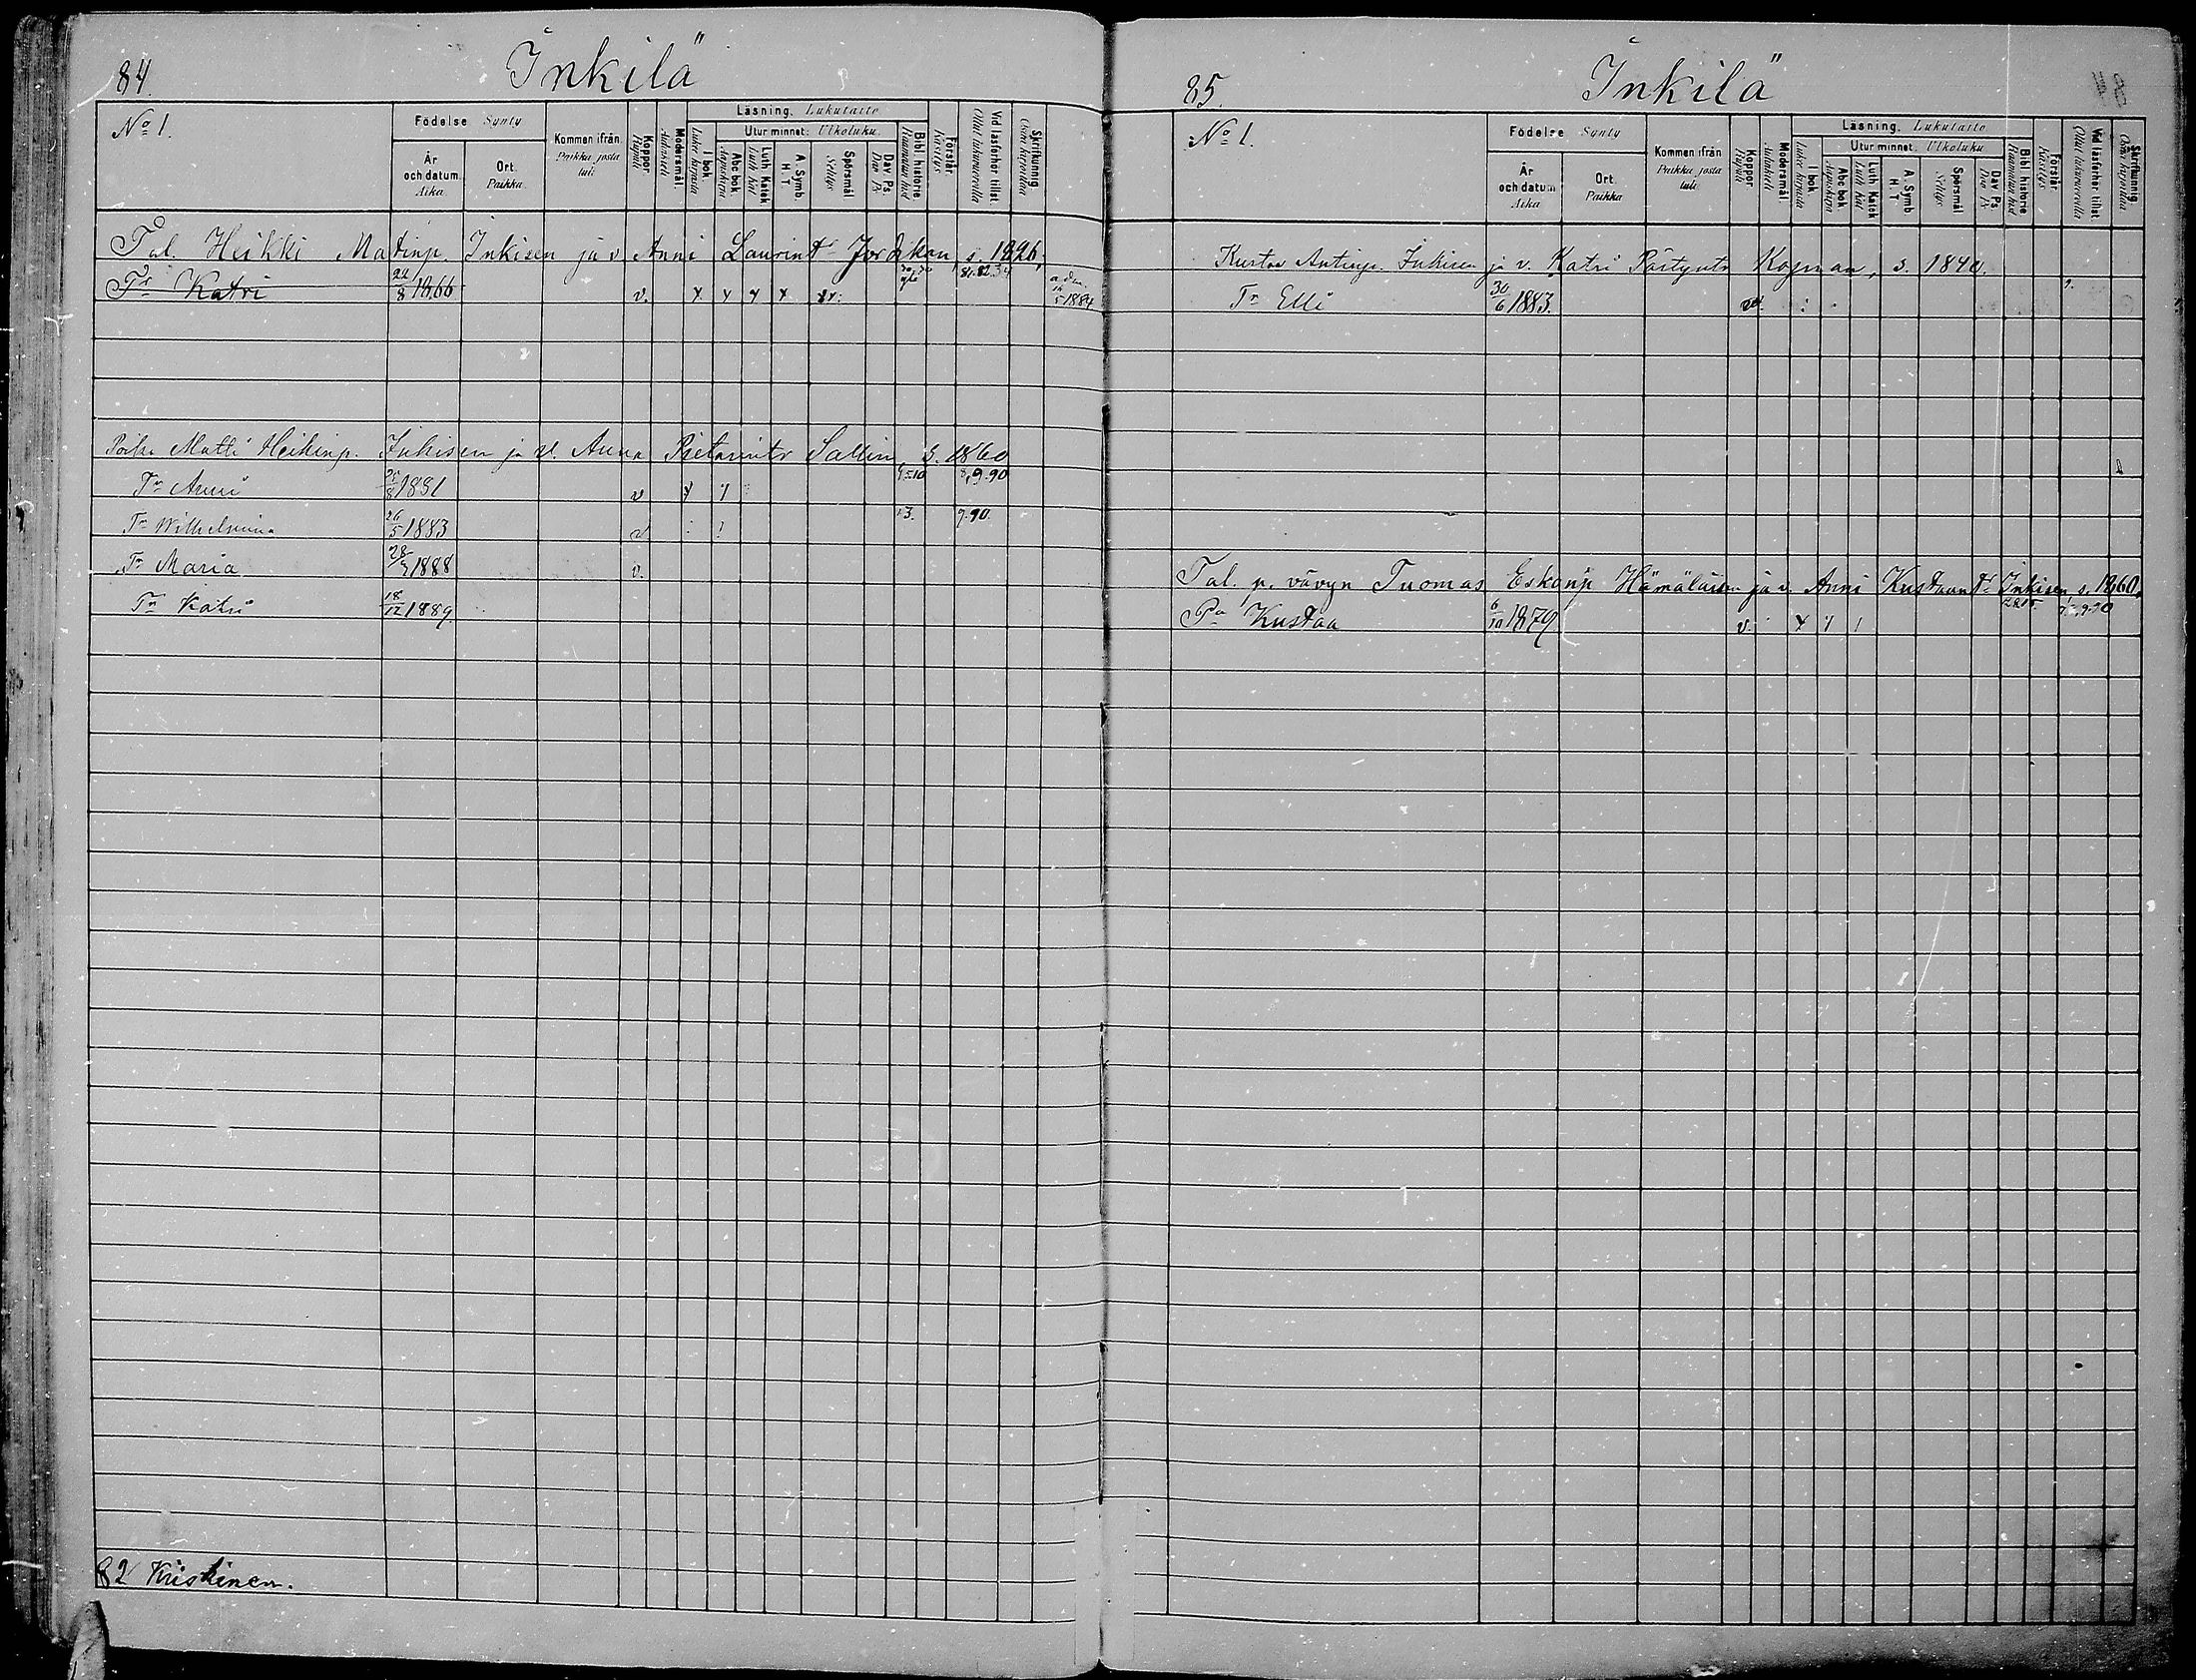 84.
Inkilä
No 1.
Födelse Synty
År och datum. Aika
Ort. Paikka.
Kommen ifrån. Paikka josta tuli
Koppor. Rupuli
Modersmål. Äidinkieli
Läsning. Lukutaito
I bok. Lukee kirjasta
Utur minnet: Ulkoluku.
Abc bok. Aapiskirja
Luth. Katek. Luth. Kat.
A. Symb. H. T.
Spörsmål Selitys
Dav. Ps. Dav. Ps.
Bibl. historie Raamatun hist
Förstår. Käsitys
Vid läsförhör tillst. Ollut lukuvuorolla
Skrifkunnig. Osaa kirjoittaa
Tal. Heikki Matinp. Inkisen ja v Anni Laurint
Tr Katri 24/8 1866 v. 81.82.
5 1884
Poika Matti Heikinp. Inkisen ja v. Anna Pietarintr Sallin S. 1860
Tr Anni 1881 v 8,9.90
Tr Wilhelmina 26/5 1883 v 3. 9.90.
Tr Maria 1888 v.
Tr Katri 18/12 1889.
82 Kiiskinen.
85.
Inkilä
No 1.
Födelse Synty
År och datum. Aika
Ort. Paikka
Kommen ifrån Paikka josta tuli
Koppor. Rupuli
Modersmål. Äidinkieli
Läsning. Lukutaito
I bok. Lukee kirjasta
Utur minnet: Ulkoluku
Abc bok Aapiskirja
Luth. Katek Luth Kat
A. Symb H. T
Spörsmål Selitys
Dav. Ps. Dav. Ps
Bibl. historie Raamatun hist
Förstår. Käsitys
Vid läsförhör tillst Ollut lukuvuorolla
Skrifkunnig. Osaa kirjoittaa
Kustav Antinp. Inkisen ja v. Katri s. 1840.
Tr Elli 30/6 1883.
Tal. p. vävyn Tuomas Eskonp Hämäläisen ja v. Anni Kustaantr Inkisen, s. 1860.
Pa Kustaa 6/10 1879 v.